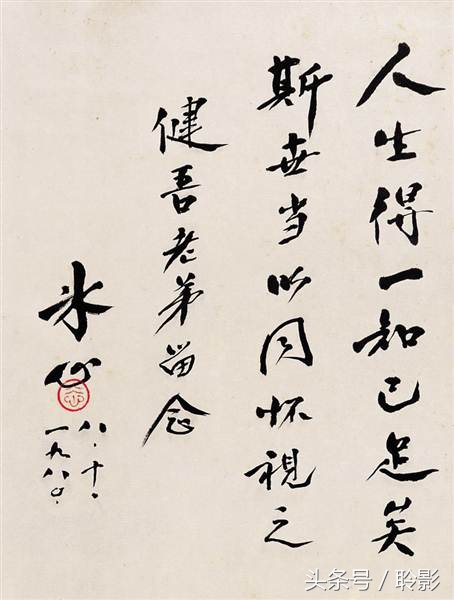 人生得一知己足矣
斯世当以同怀視之
健吾老弟留念
冰心
八.十.
一九八〇.
头条号 / 聆影